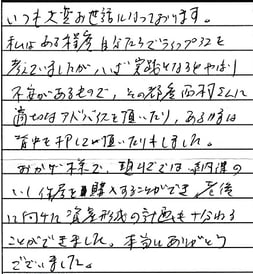 いつも大変お世話になっております。
私はある程度自分たちでライフプランを
考えていましたが、いざ実践となるとやはり
不安があるもので、その都度西村さんに
適切なアドバイスを頂いたり、あるいは
背中を押して頂いたりもしました。
おかげ様で、現時点では納得の
いく住居を購入することができ、老後
に向けた資産形成の計画も十分わる
ことができました。本当にありがとう
ございました。